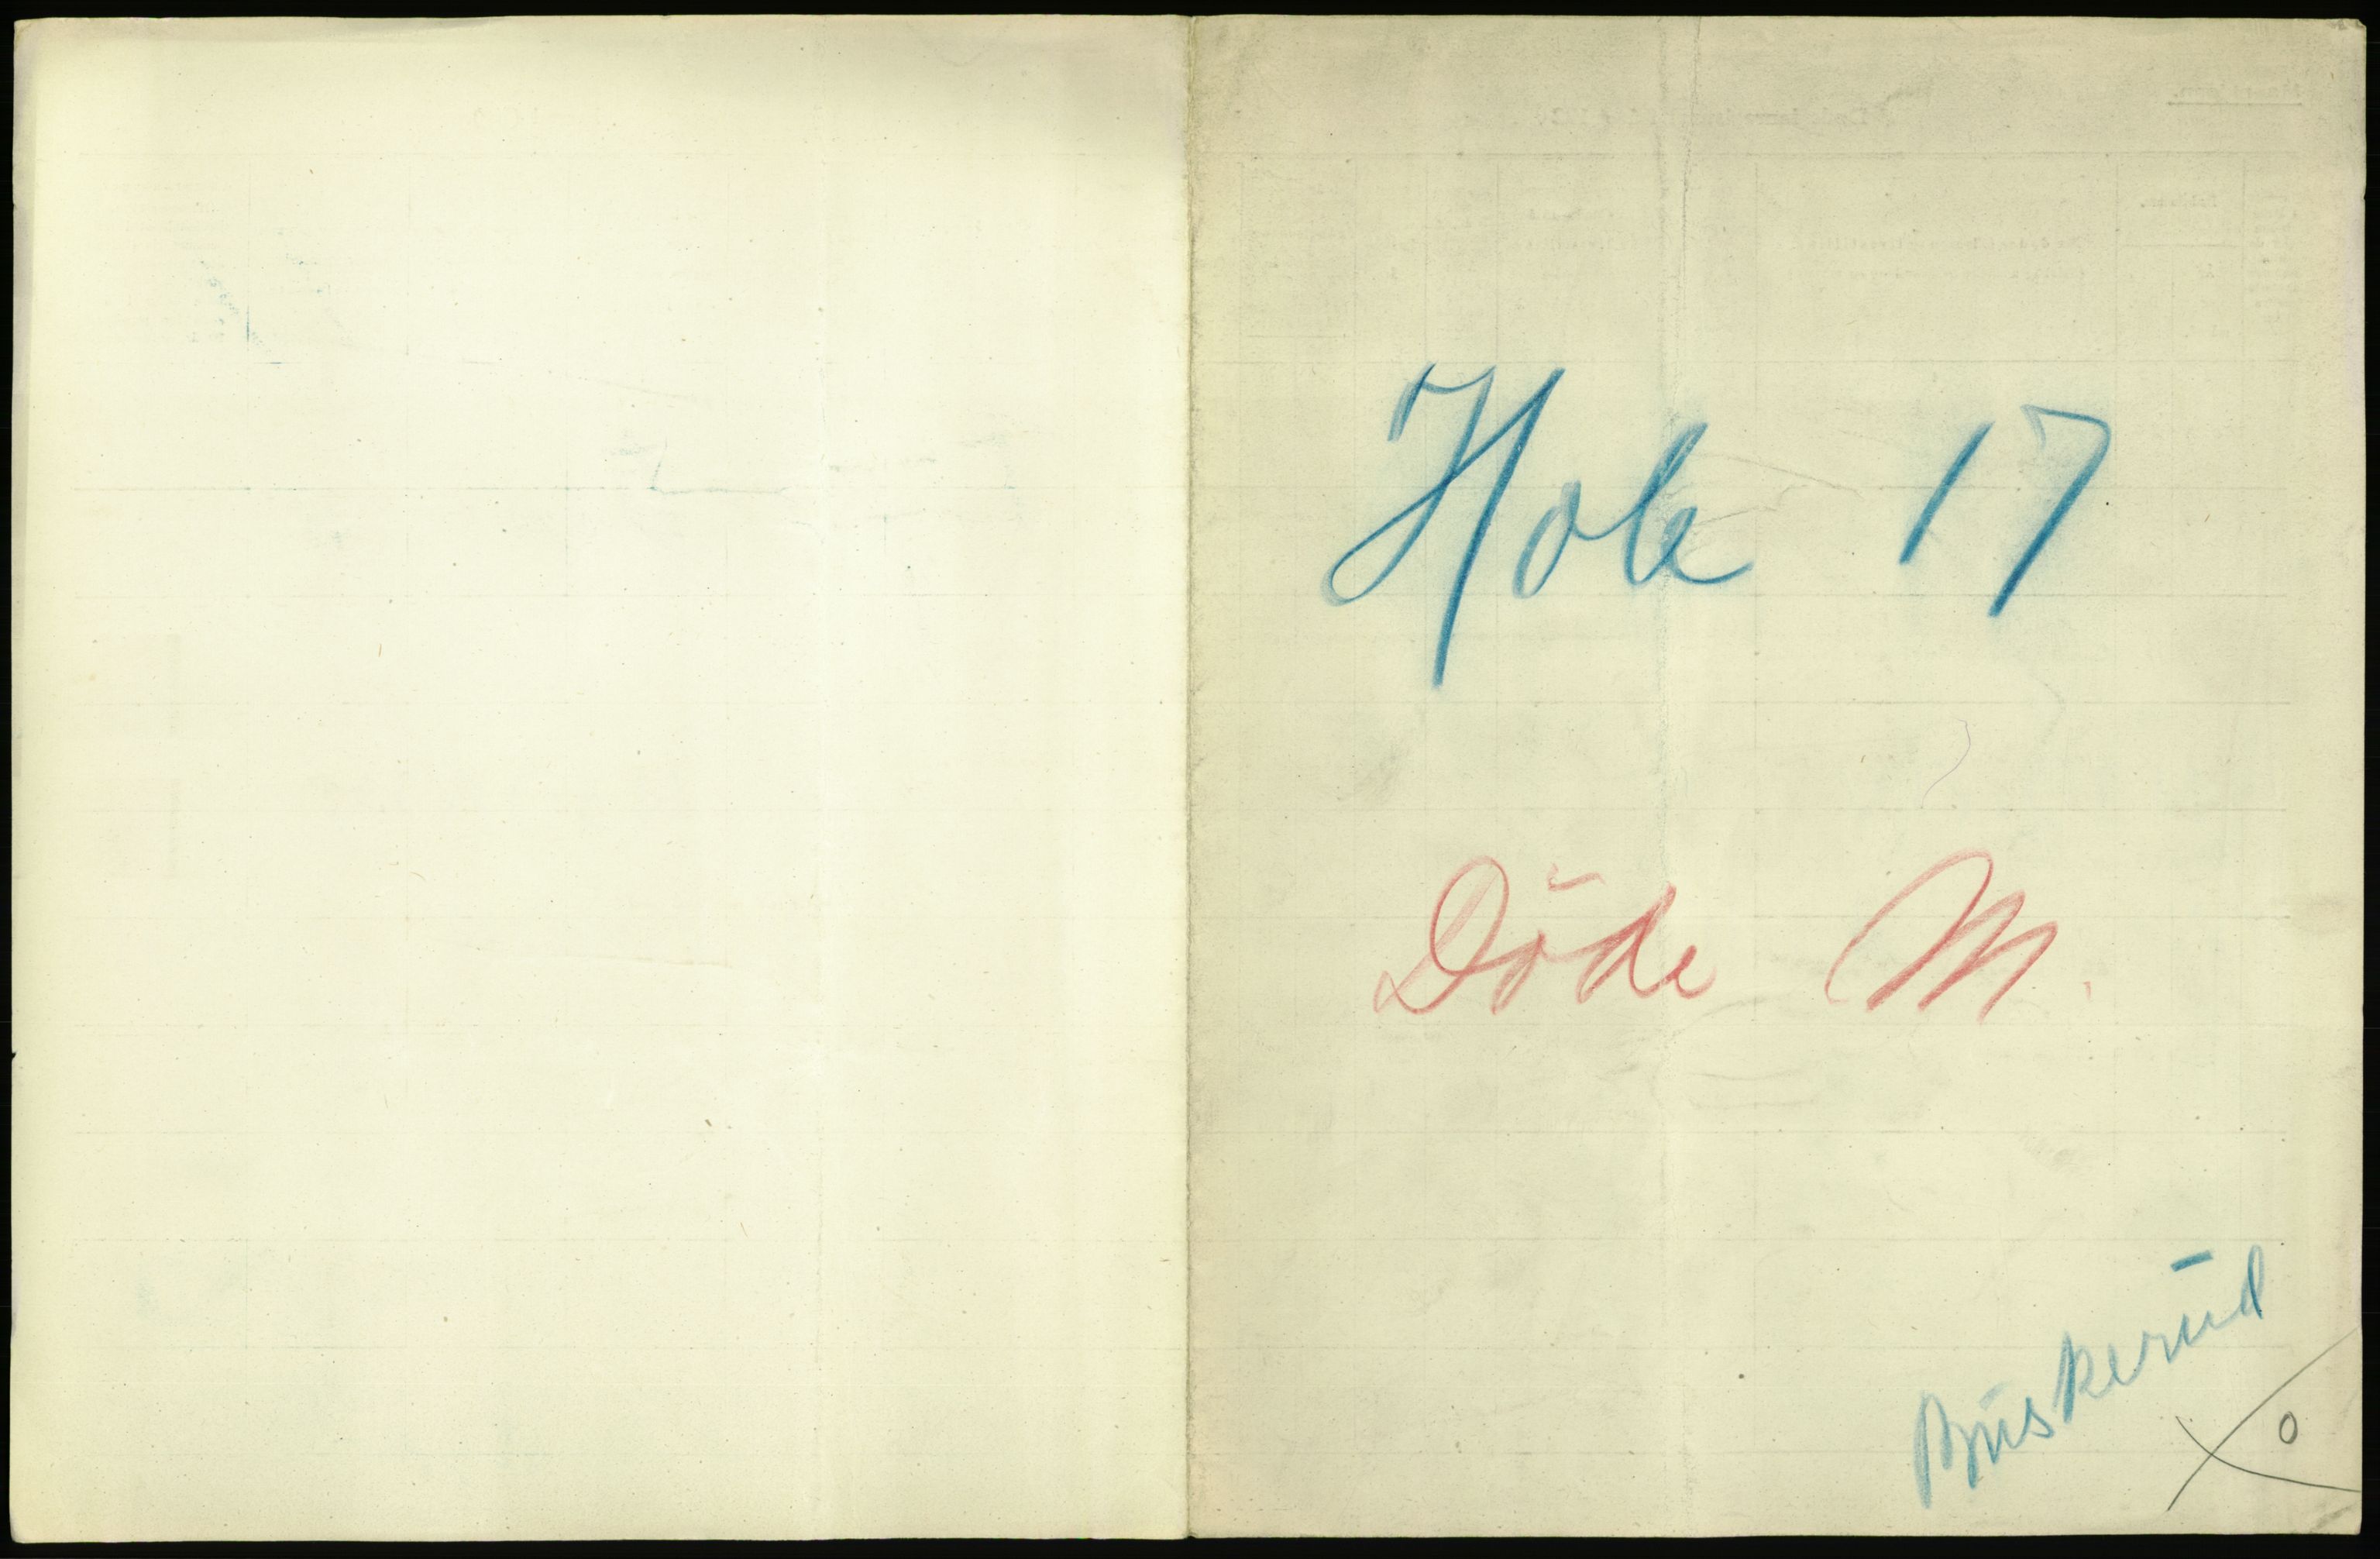 Hole 17
Döde M.
Buskerud
0